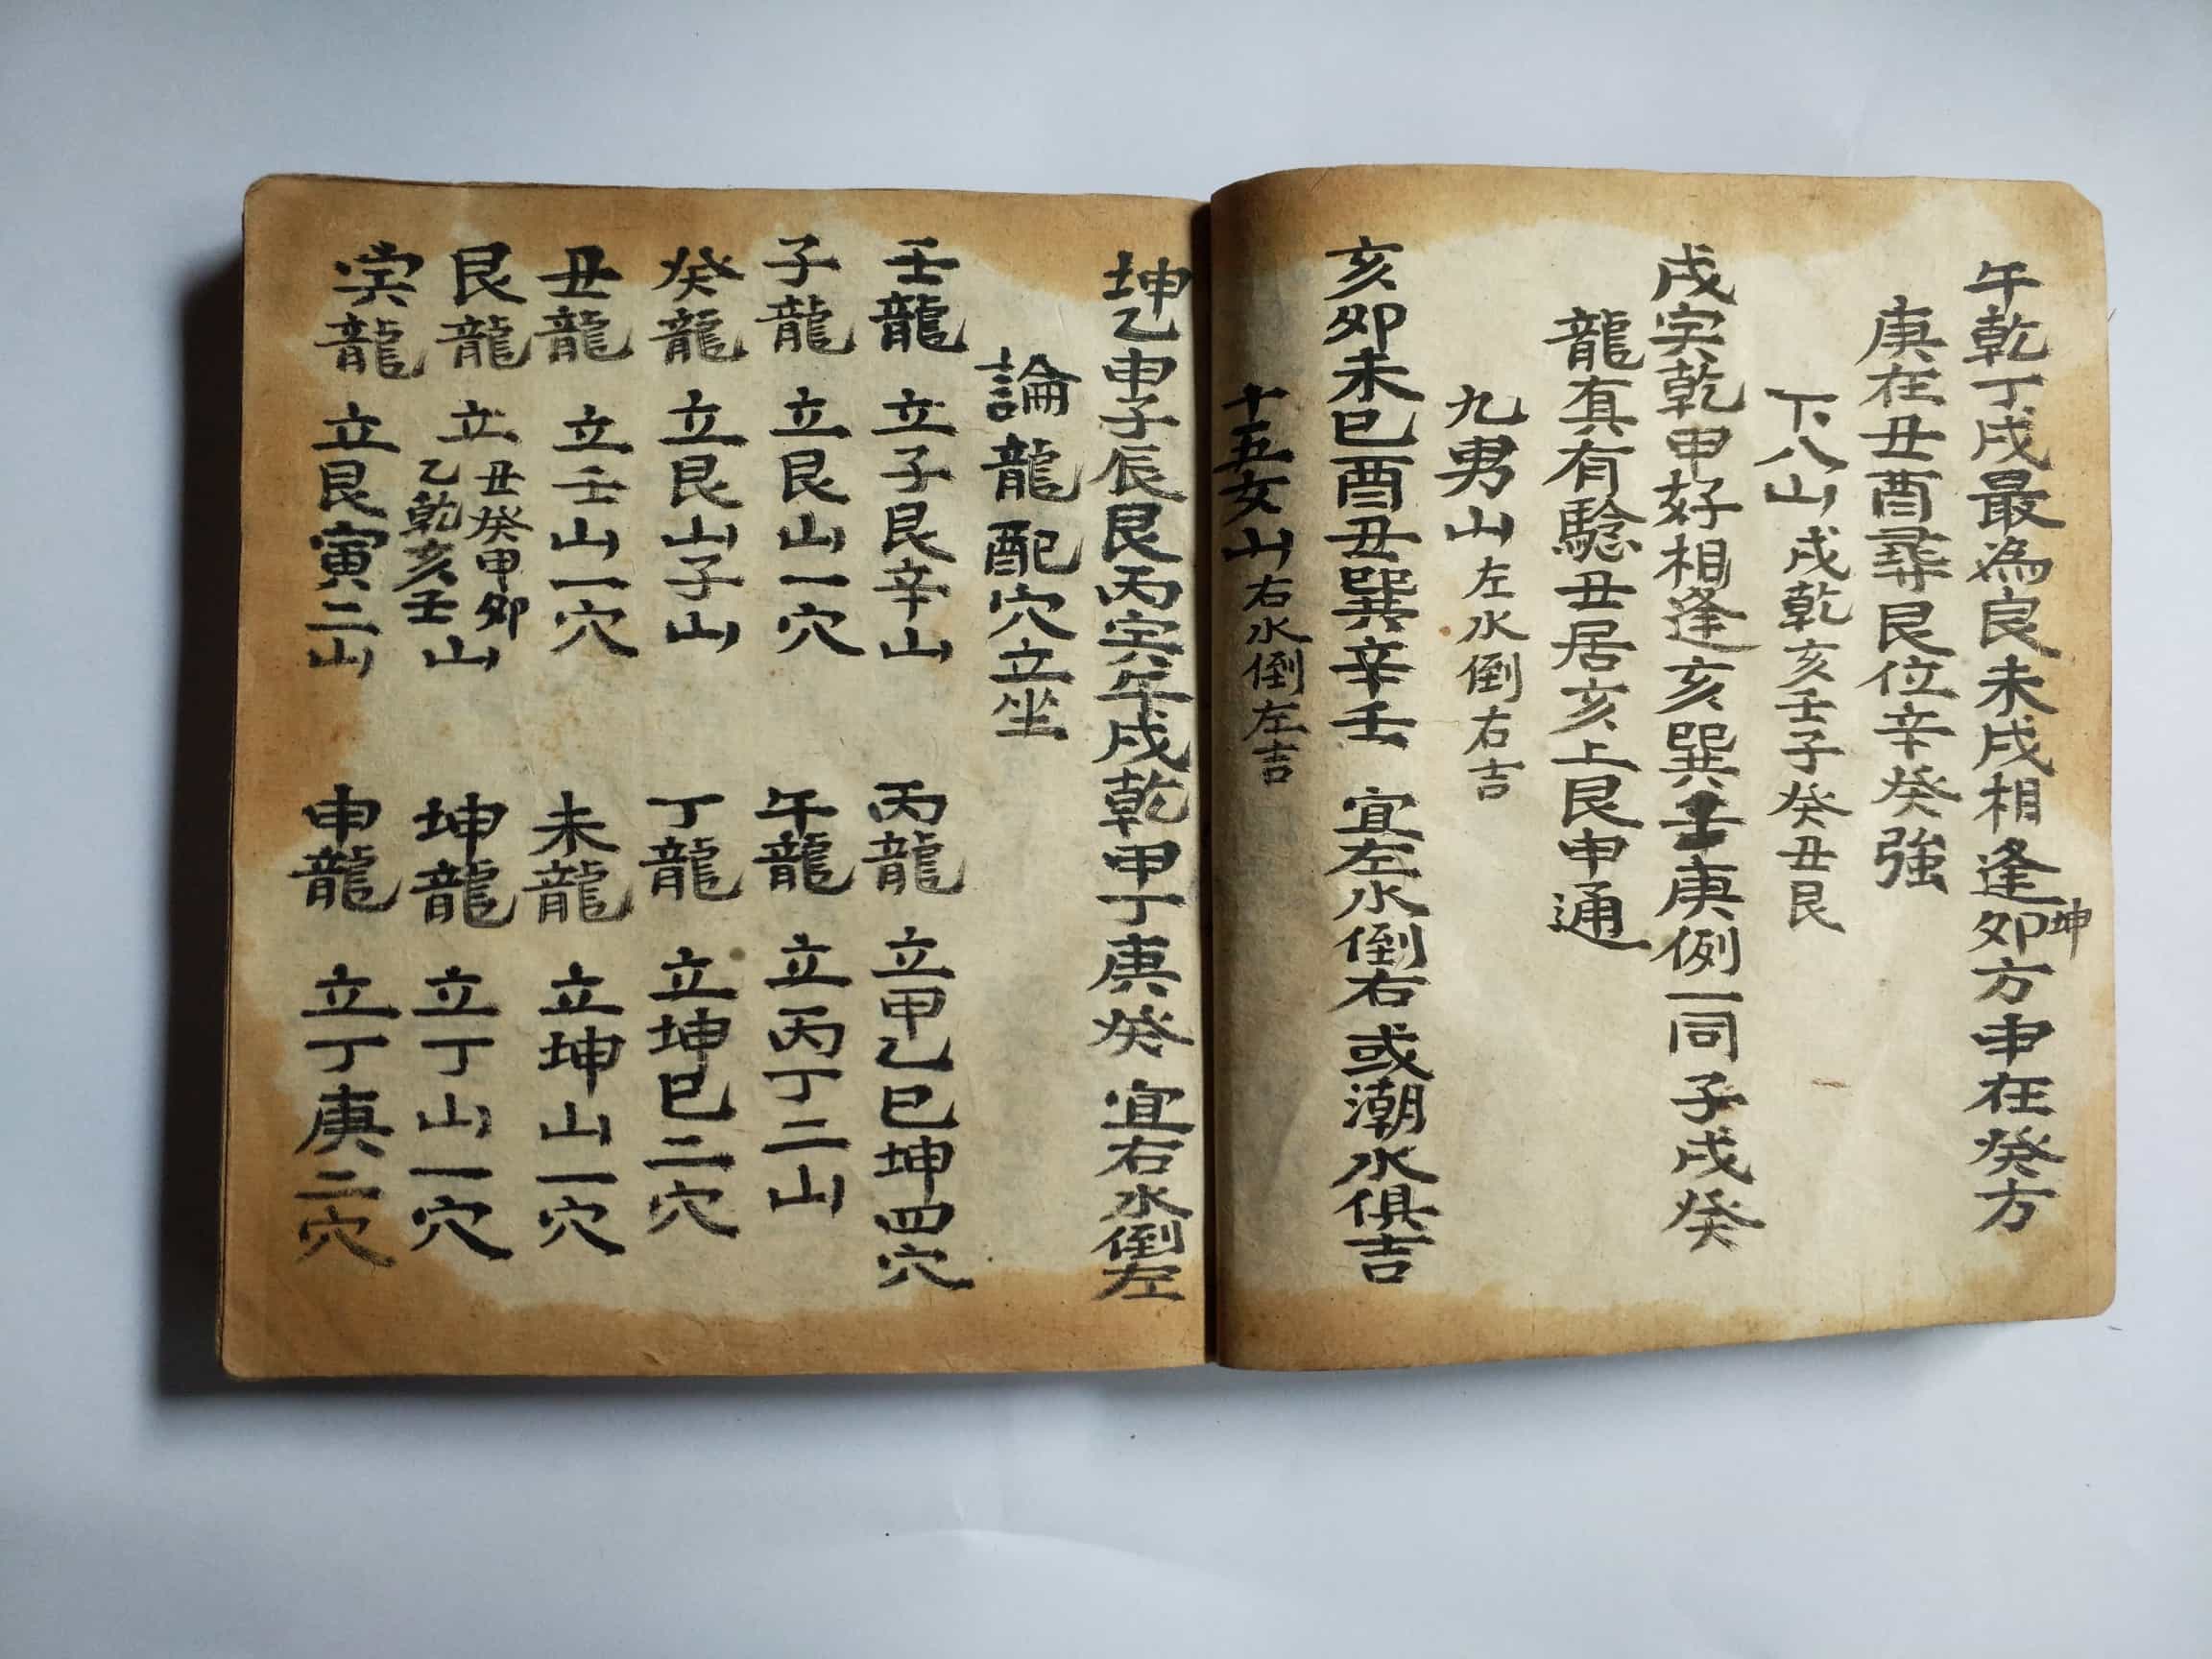 午乾丁戌最為良未戌相逢卯方申在癸方
坤
庚在丑酉尋艮位辛癸強
下八山戌乾亥壬子癸丑艮
戌寅乾甲好相逢亥巽壬庚例一同子戌癸
龍真有騐丑居亥上艮申通
九男山左水倒右吉
亥卯未巳酉丑巽辛壬 宜左水倒右或潮水俱吉
十五女山右水倒左吉
坤乙申子辰艮丙寅午戌乾甲丁庚癸 宜右水倒左
論龍配穴立坐
壬龍 立子艮辛山 丙龍 立甲乙巳坤四穴
子龍 立艮山一穴 午龍 立丙丁二山
癸龍 立艮山子山 丁龍 立坤巳二穴
丑龍 立壬山一穴 未龍 立坤山一穴
艮龍 立丑癸甲卯乙乾亥壬山 坤龍 立丁山一穴
寅龍 立艮寅二山 申龍 立丁庚二穴